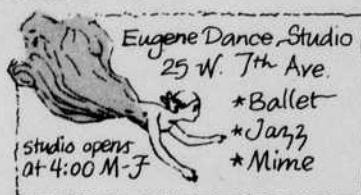 Eugene Dance Studio
25 W. 7th Ave.
*Ballet
*Jazz
*Mime
studio opens
at 4:00 M-F